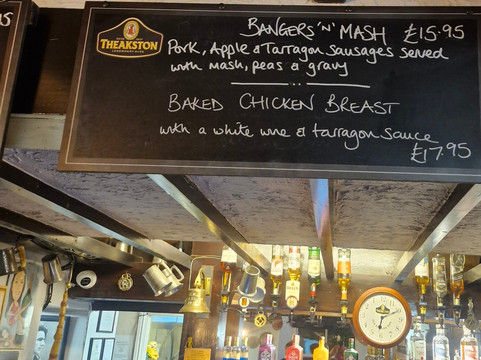 THEAKSTON
LEGENDARY ALES
BANGERS 'N' MASH £15.95
Pork, Apple & Tarragon sausages served
with mash, peas & gravy
BAKED CHICKEN BREAST
with a white wine & tarragon sauce
£17.95